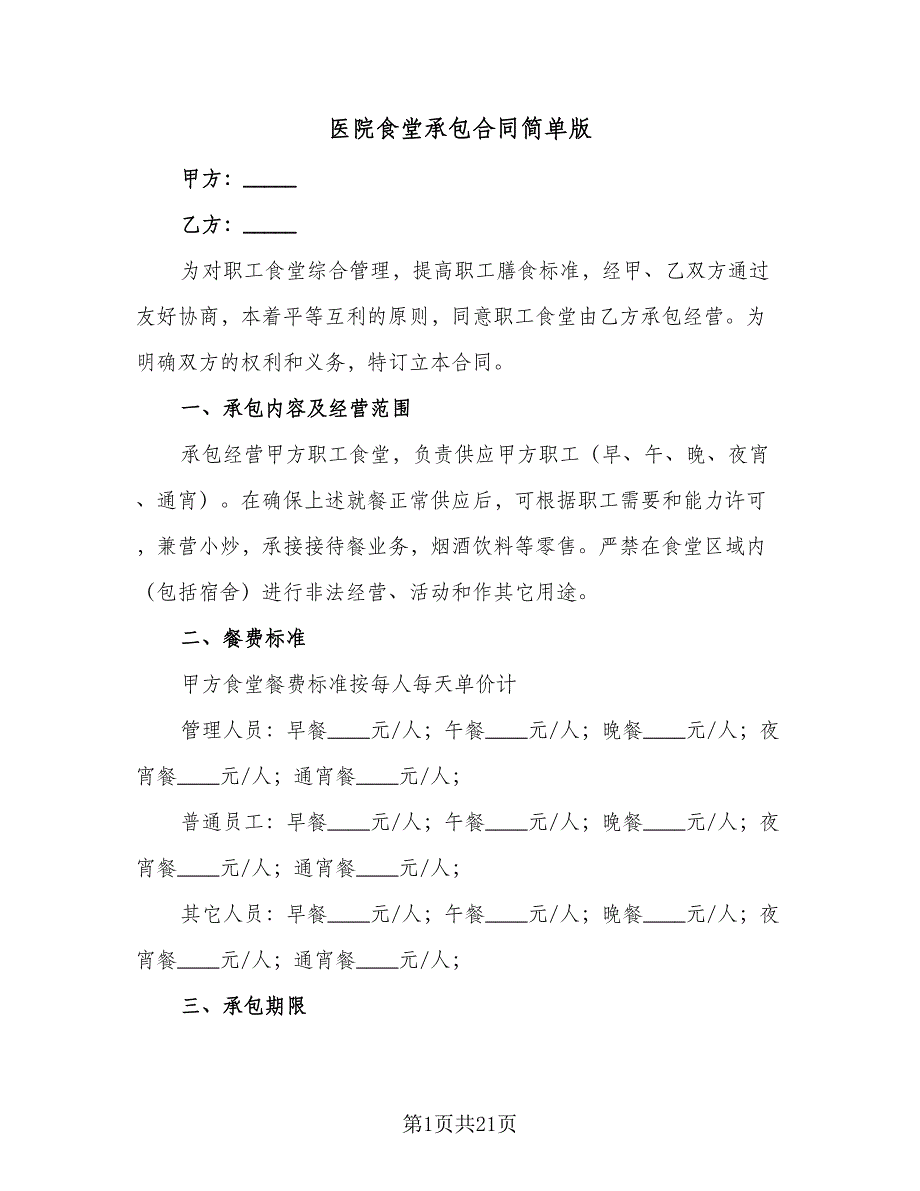 医院食堂承包合同简单版
甲方：_____
乙方：_____
为对职工食堂综合管理，提高职工膳食标准，经甲、乙双方通过
友好协商，本着平等互利的原则，同意职工食堂由乙方承包经营。为
明确双方的权利和义务，特订立本合同。
一、承包内容及经营范围
承包经营甲方职工食堂，负责供应甲方职工（早、午、晚、夜宵
、通宵）。在确保上述就餐正常供应后，可根据职工需要和能力许可
，兼营小炒，承接接待餐业务，烟酒饮料等零售。严禁在食堂区域内
（包括宿舍）进行非法经营、活动和作其它用途。
二、餐费标准
甲方食堂餐费标准按每人每天单价计
管理人员：早餐____元/人；午餐____元/人；晚餐____元/人；夜
宵餐____元/人；通宵餐____元/人；
普通员工：早餐____元/人；午餐____元/人；晚餐____元/人；夜
宵餐____元/人；通宵餐____元/人；
其它人员：早餐____元/人；午餐____元/人；晚餐____元/人；夜
宵餐____元/人；通宵餐____元/人；
三、承包期限
第1页共21页